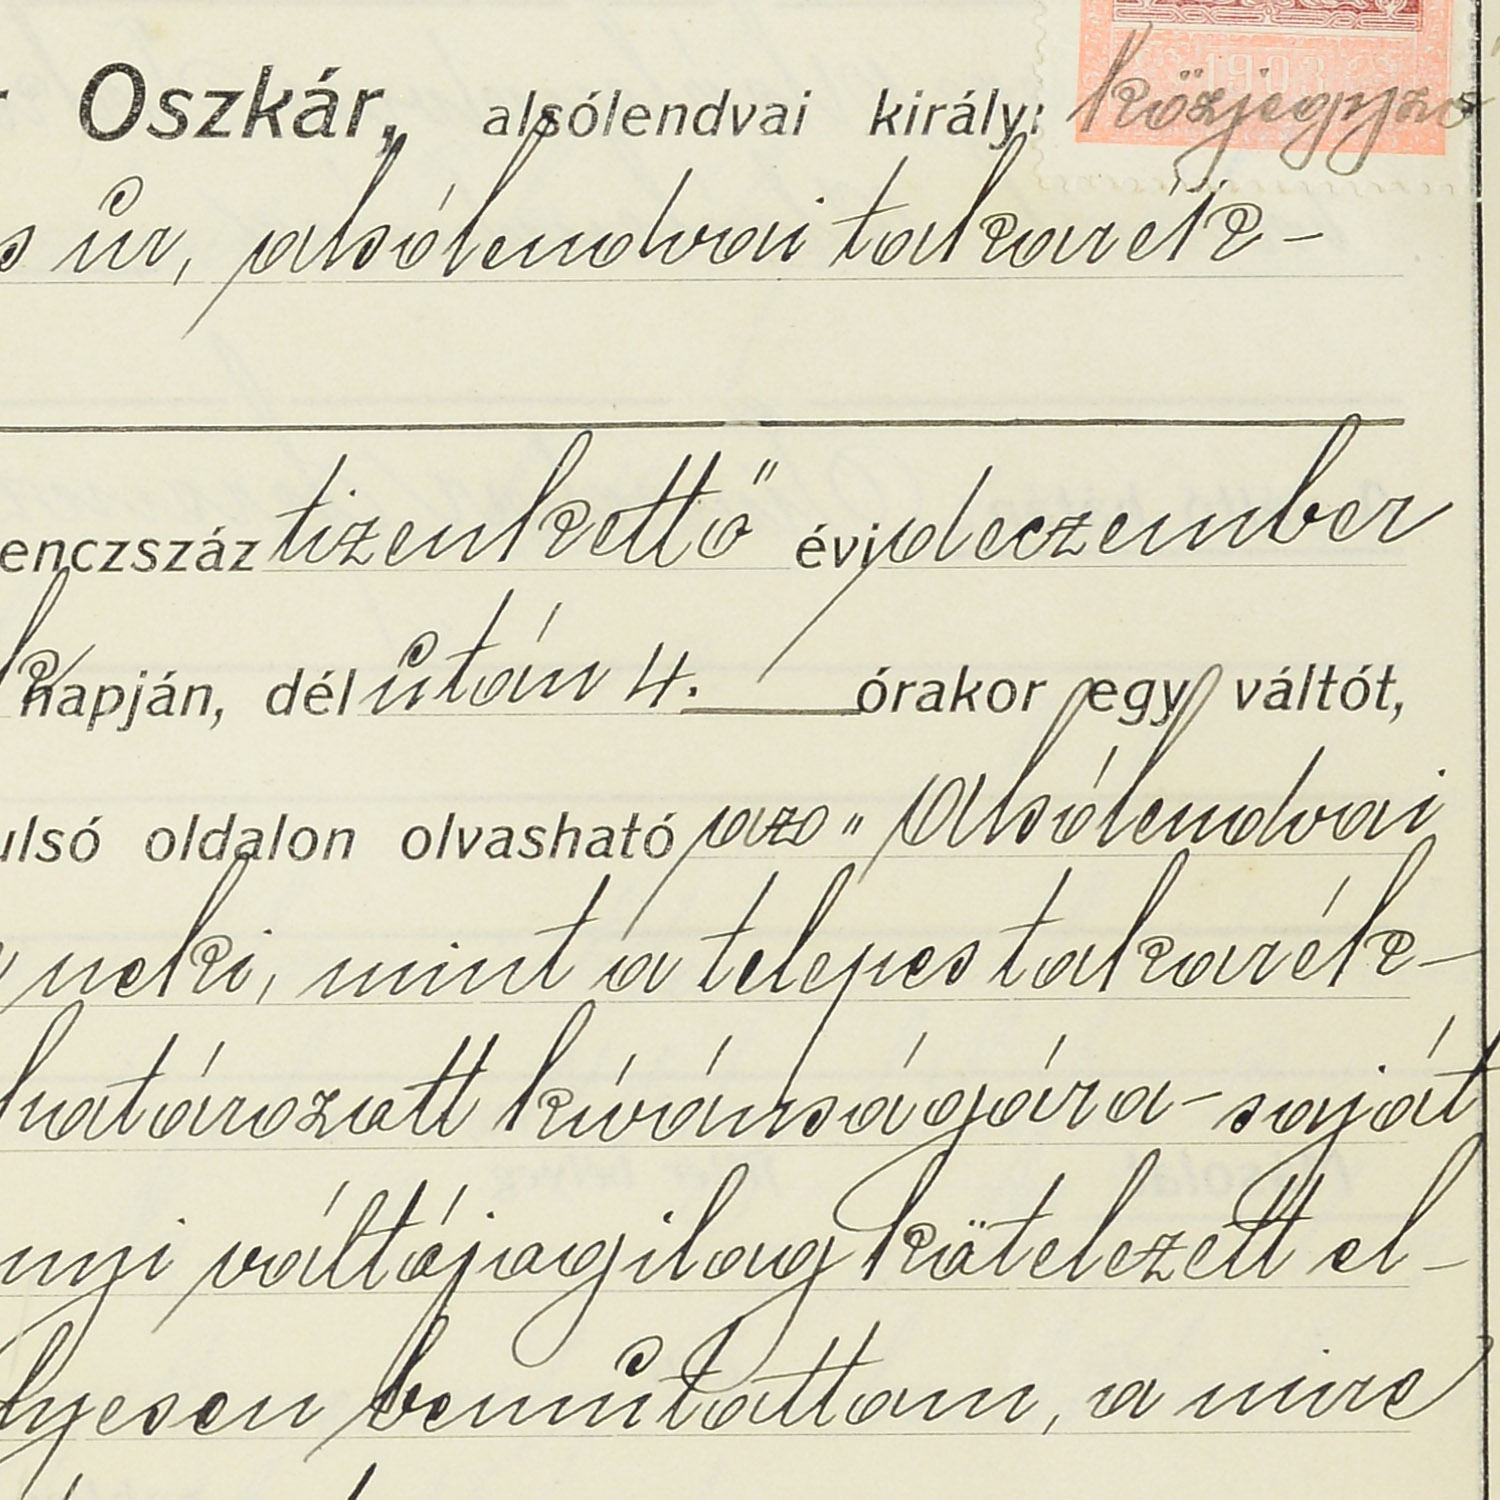 Oszkár, alsólendvai király: közjegyző
úr, alsólendvai takarék-
enczszáz tizenkettő évi deczember
napján, dél után 4. órakor egy váltót,
ulsó oldalon olvasható az „Alsólendvai
neki, mint a telepes takarék-
határozott kívánságára - saját
nyi váltójogilag kötelezett el-
lyesen bemutattam, a mire